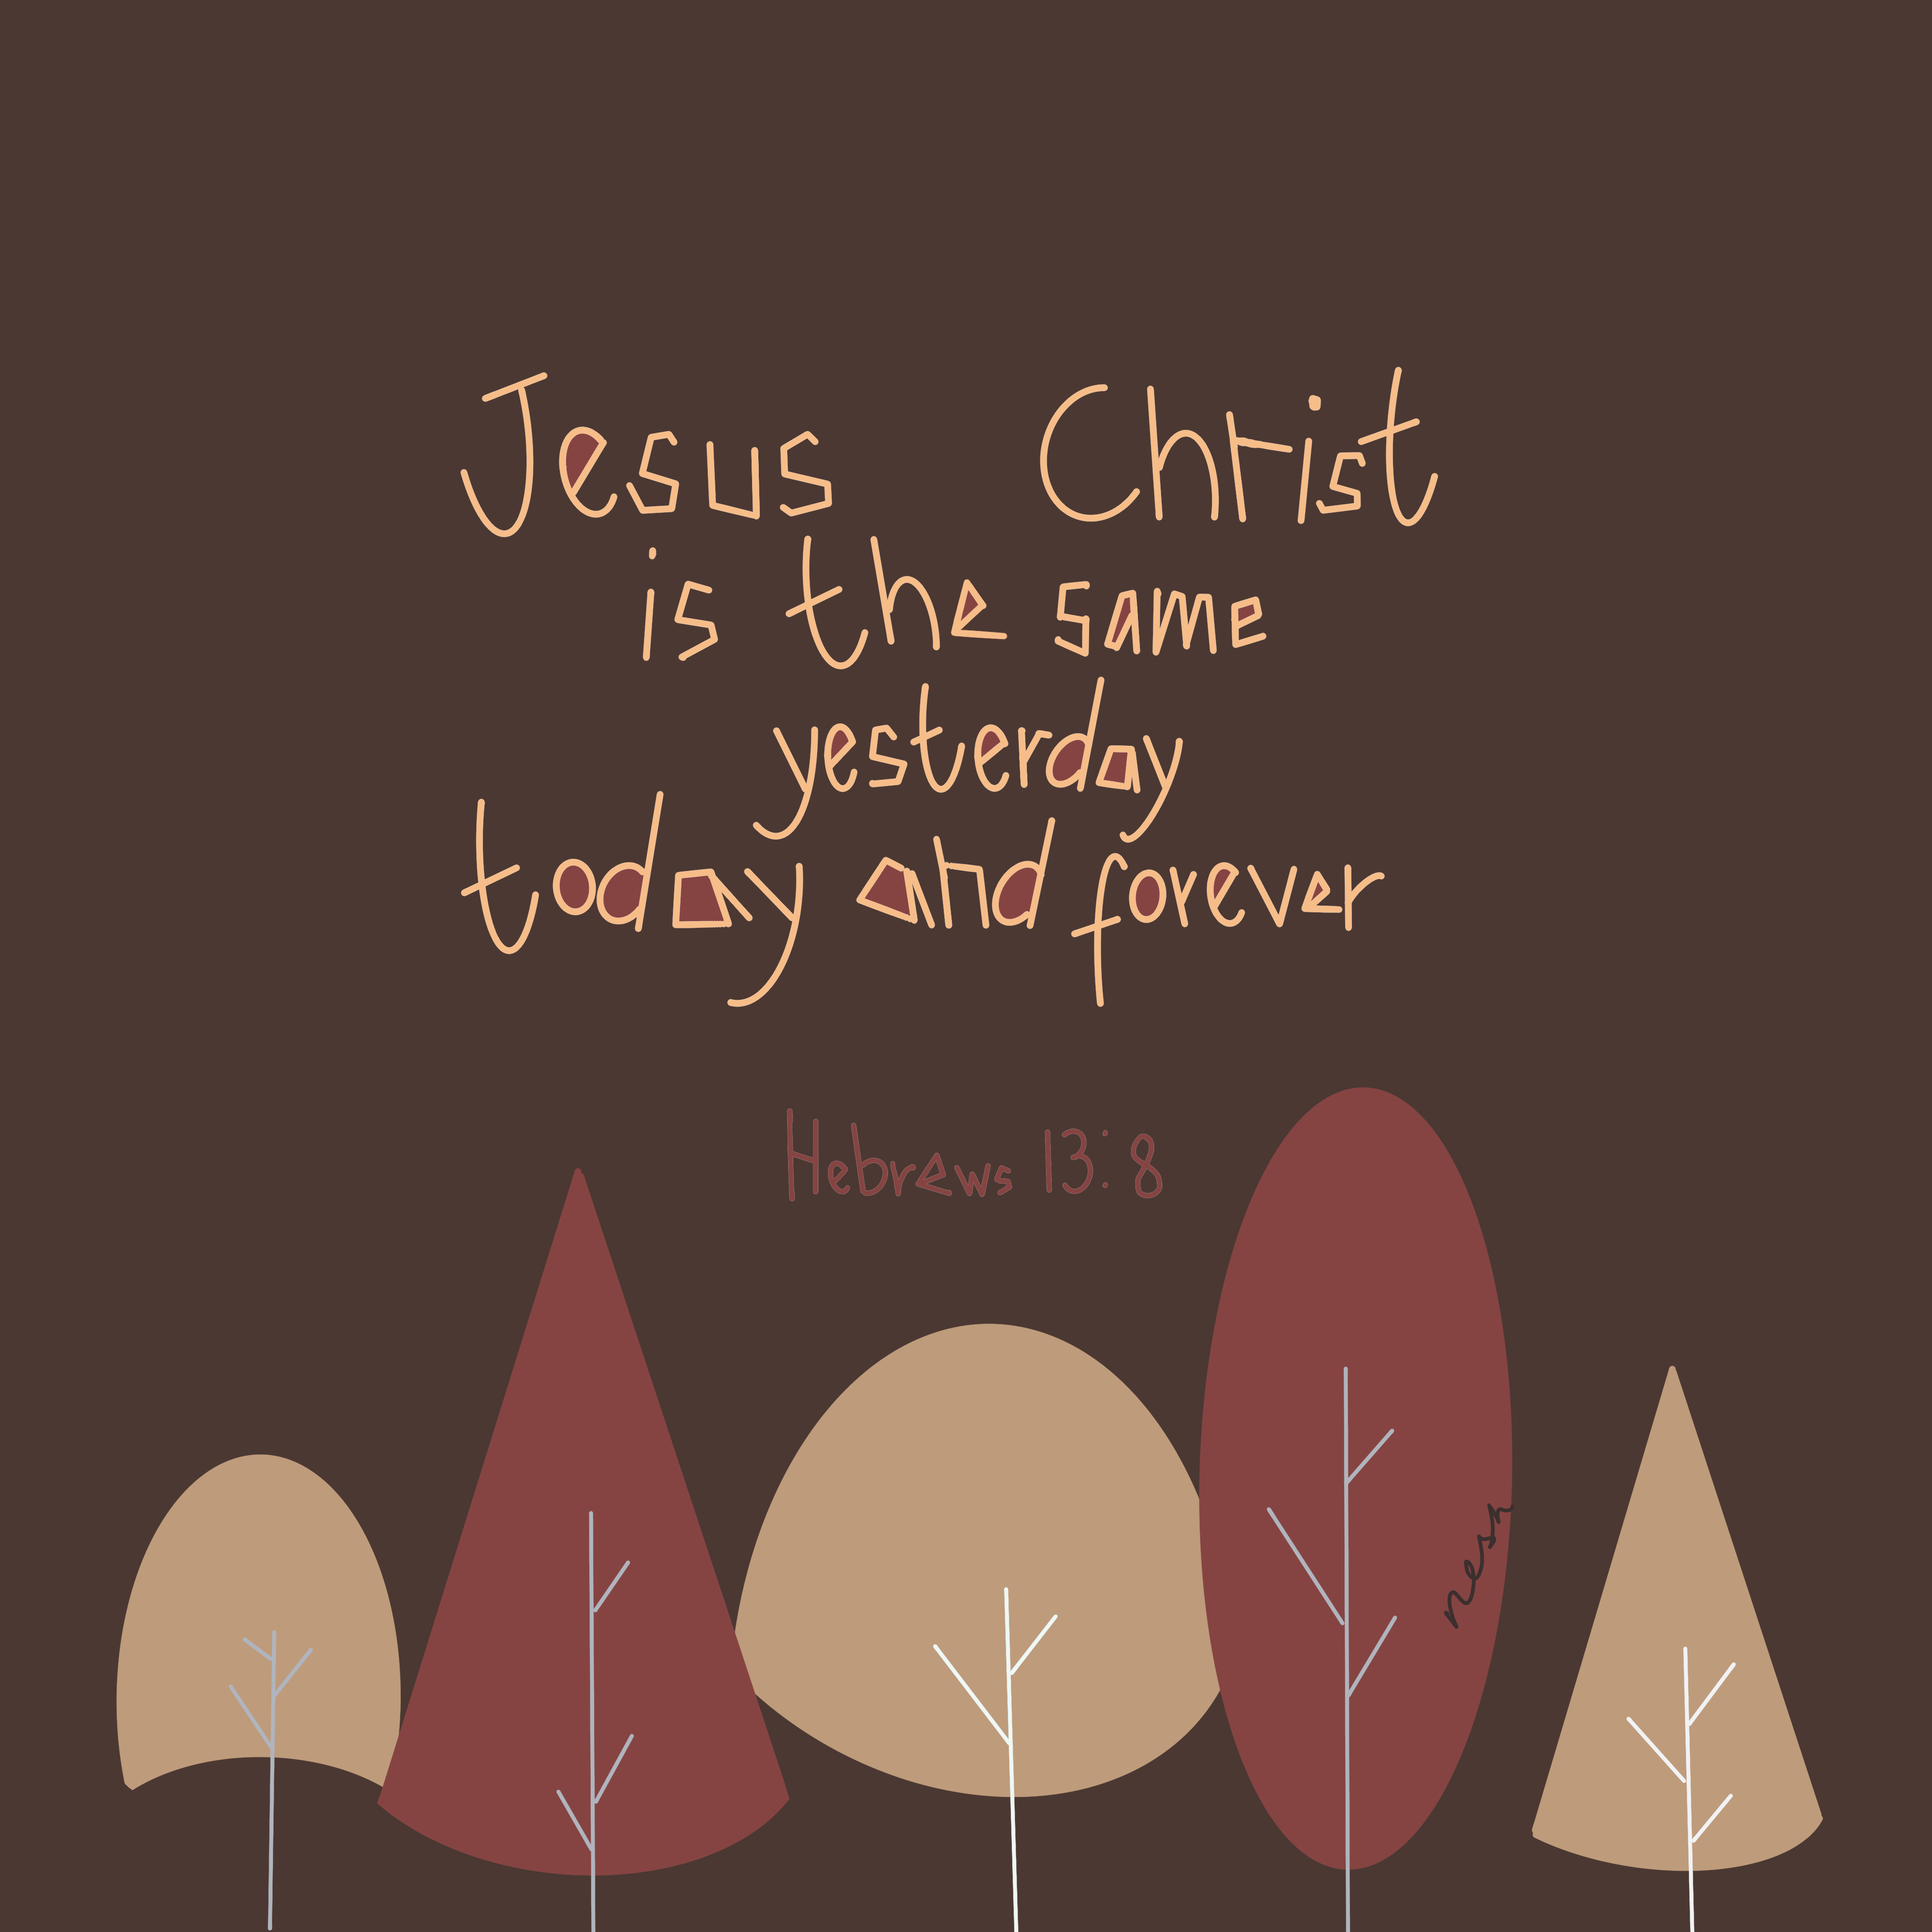 Jesus Christ
is the same
yesterday
today and forever
Hebrews 13:8